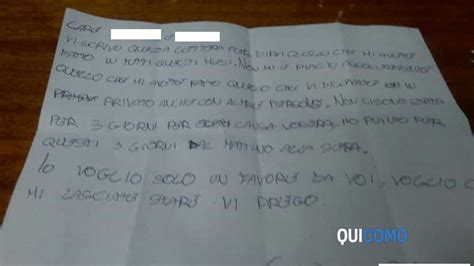 CARE E
VI SCRIVO QUESTA LETTERA PER DIRVI QUELLO CHE MI AVETE
FATTO IN TUTTI QUESTI MESI. NON MI È PIACIUTO ASSOLUTAMENTE
QUELLO CHE MI AVETE FATTO QUELLO CHE VI DICEVATE IN
PRIVATO ANCHE CON ALTRE PERSONE. NON
PER 3 GIORNI PER CAUSA VOSTRA. HO PIANTO PER
QUESTI 3 GIORNI DAL MATTINO ALLA SERA.
IO VOGLIO SOLO UN FAVORE DA VOI, VOGLIO C
MI LASCIATE STARE VI PREGO.
QUICOMO